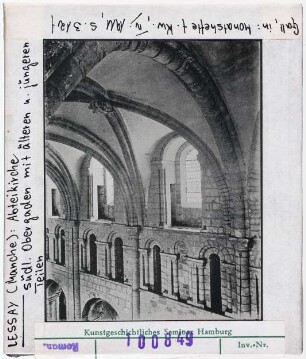 LESSAY (Manche): Abteikirche
südl. Obergaden mit älteren u. jüngeren
Teilen
Gall, in: Monatshefte f. Kw., IV
Kunstgeschichtliches Seminar Hamburg
Roman.
100849
Inv.-Nr.